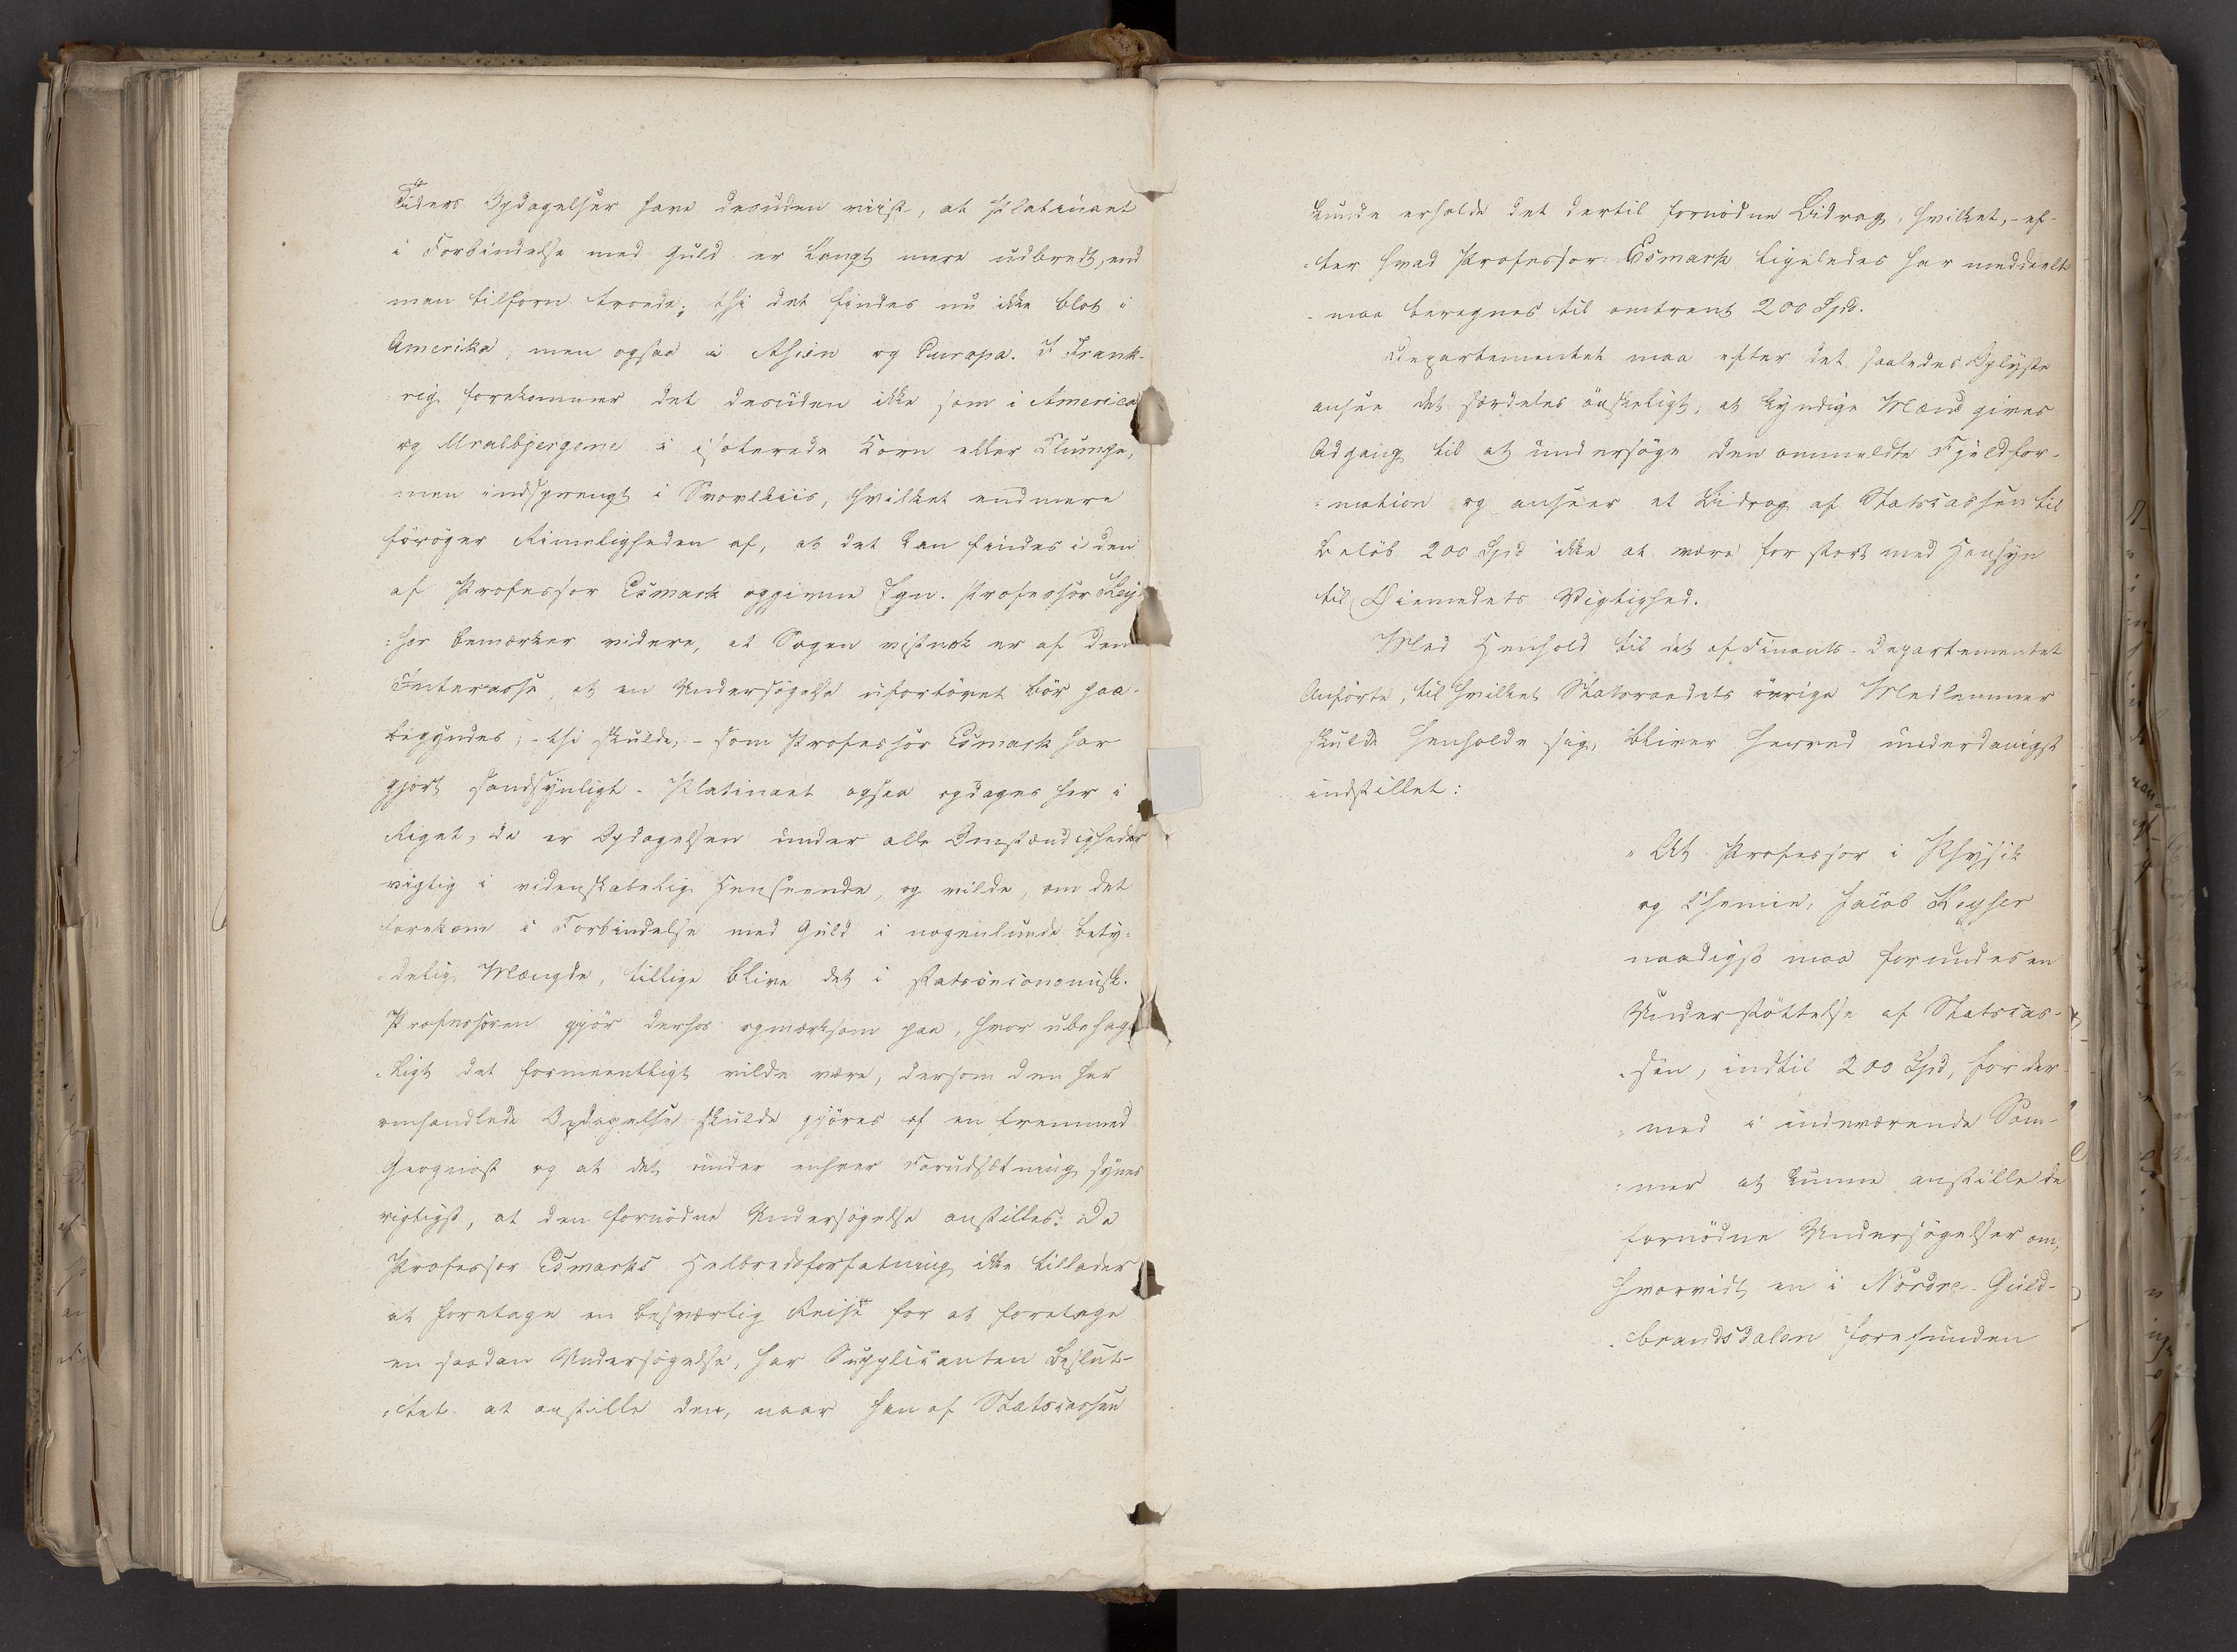 Tiders Opdagelser have desuden viist, at Platinaet
i Forbindelse med Guld er langt mere udbredt, end
man tilforn troede; thi det findes nu ikke blot i
Amerika, men ogsaa i Asien og Europa. I Frank-
rig forekommer det desuden ikke som i America
og Uralbjergene i isolerede Korn eller Klumpe,
men indsprengt i Svovlkiis, hvilket endmere
foröger Rimeligheden af, at det kan findes i den
af Professor Esmark opgivne Egn. Professor Key-
:ser bemærker videre, at Sagen vistnok er af den
Interesse, at en Undersögelse ufortövet bör paa-
begyndes; - thi skulde, - som Professor Esmark har
gjort sandsynligt - Platinaet ogsaa opdages her i
Riget, da er Opdagelsen under alle Omstændigheder
vigtig i videnskabelig Henseende, og vilde, om det
forekom i Forbindelse med Guld i nogenlunde bety-
:delig Mængde, tillige blive det i statsöconomisk.
Professoren gjör derhos opmærksom paa, hvor ubehage
:ligt det formeentligt vilde være, dersom den her
omhandlede Opdagelse skulde gjöres af en fremmed
Geognost og at det under enhver Forudsætning synes
vigtigst, at den fornödne Undersögelse anstilles. Da
Professor Esmarks Helbredsforfatning ikke tillader
at foretage en besværlig Reise for at foretage
en saadan Undersögelse, har Supplicanten beslut-
:tet at anstille den, naar han af Statscassen
kunde erholde det dertil fornödne Bidrag, hvilket, - ef-
:ter hvad Professor Esmark ligeledes har meddeelt
- maa beregnes til omtrent 200 Spd.
Departementet maa efter det saaledes Oplyste
ansee det særdeles önskeligt, at kyndige Mænd gives
Adgang til at undersöge den ommeldte Fjeldfor-
:mation og anseer et Bidrag af Statscassen til
Belöb 200 Spd ikke at være for stort med Hensyn
til Öiemedets Vigtighed.
Med Henhold til det af Finants-Departementet
Anförte, til hvilket Statsraadets övrige Medlemmer
skulde henholde sig, bliver herved underdanigst
indstillet:
"At Professor i Physik
og Chemie, Jacob Keyser
naadigst maa forundes en
Understöttelse af Statscas-
:sen, indtil 200 Spd, for der-
:med i indeværende Som-
:mer at kunne anstille de
fornödne Undersögelser om,
hvorvidt en i Nordre Guld-
:brandsdalen forefunden